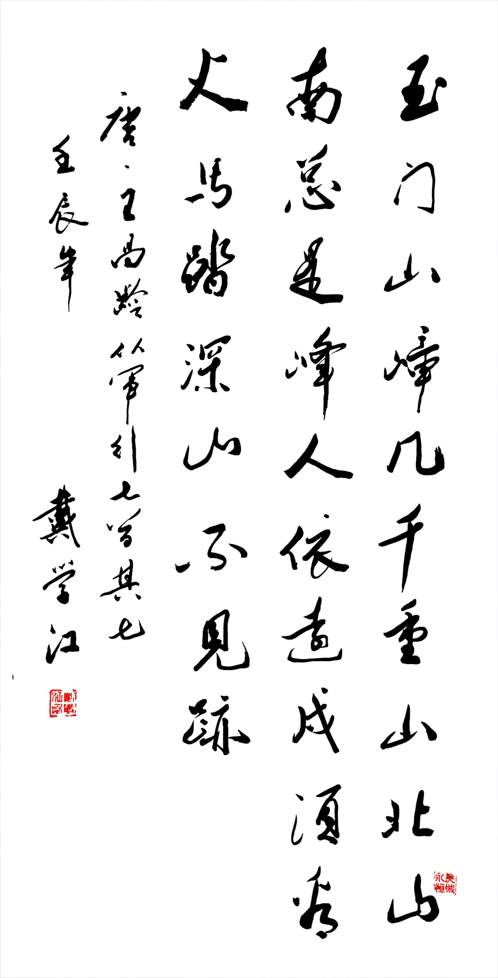 玉门山嶂几千重山北山
南总是峰人依远戍须看
火马踏深山不见跡
唐·王昌龄从军行七首其七
壬辰年 戴学江